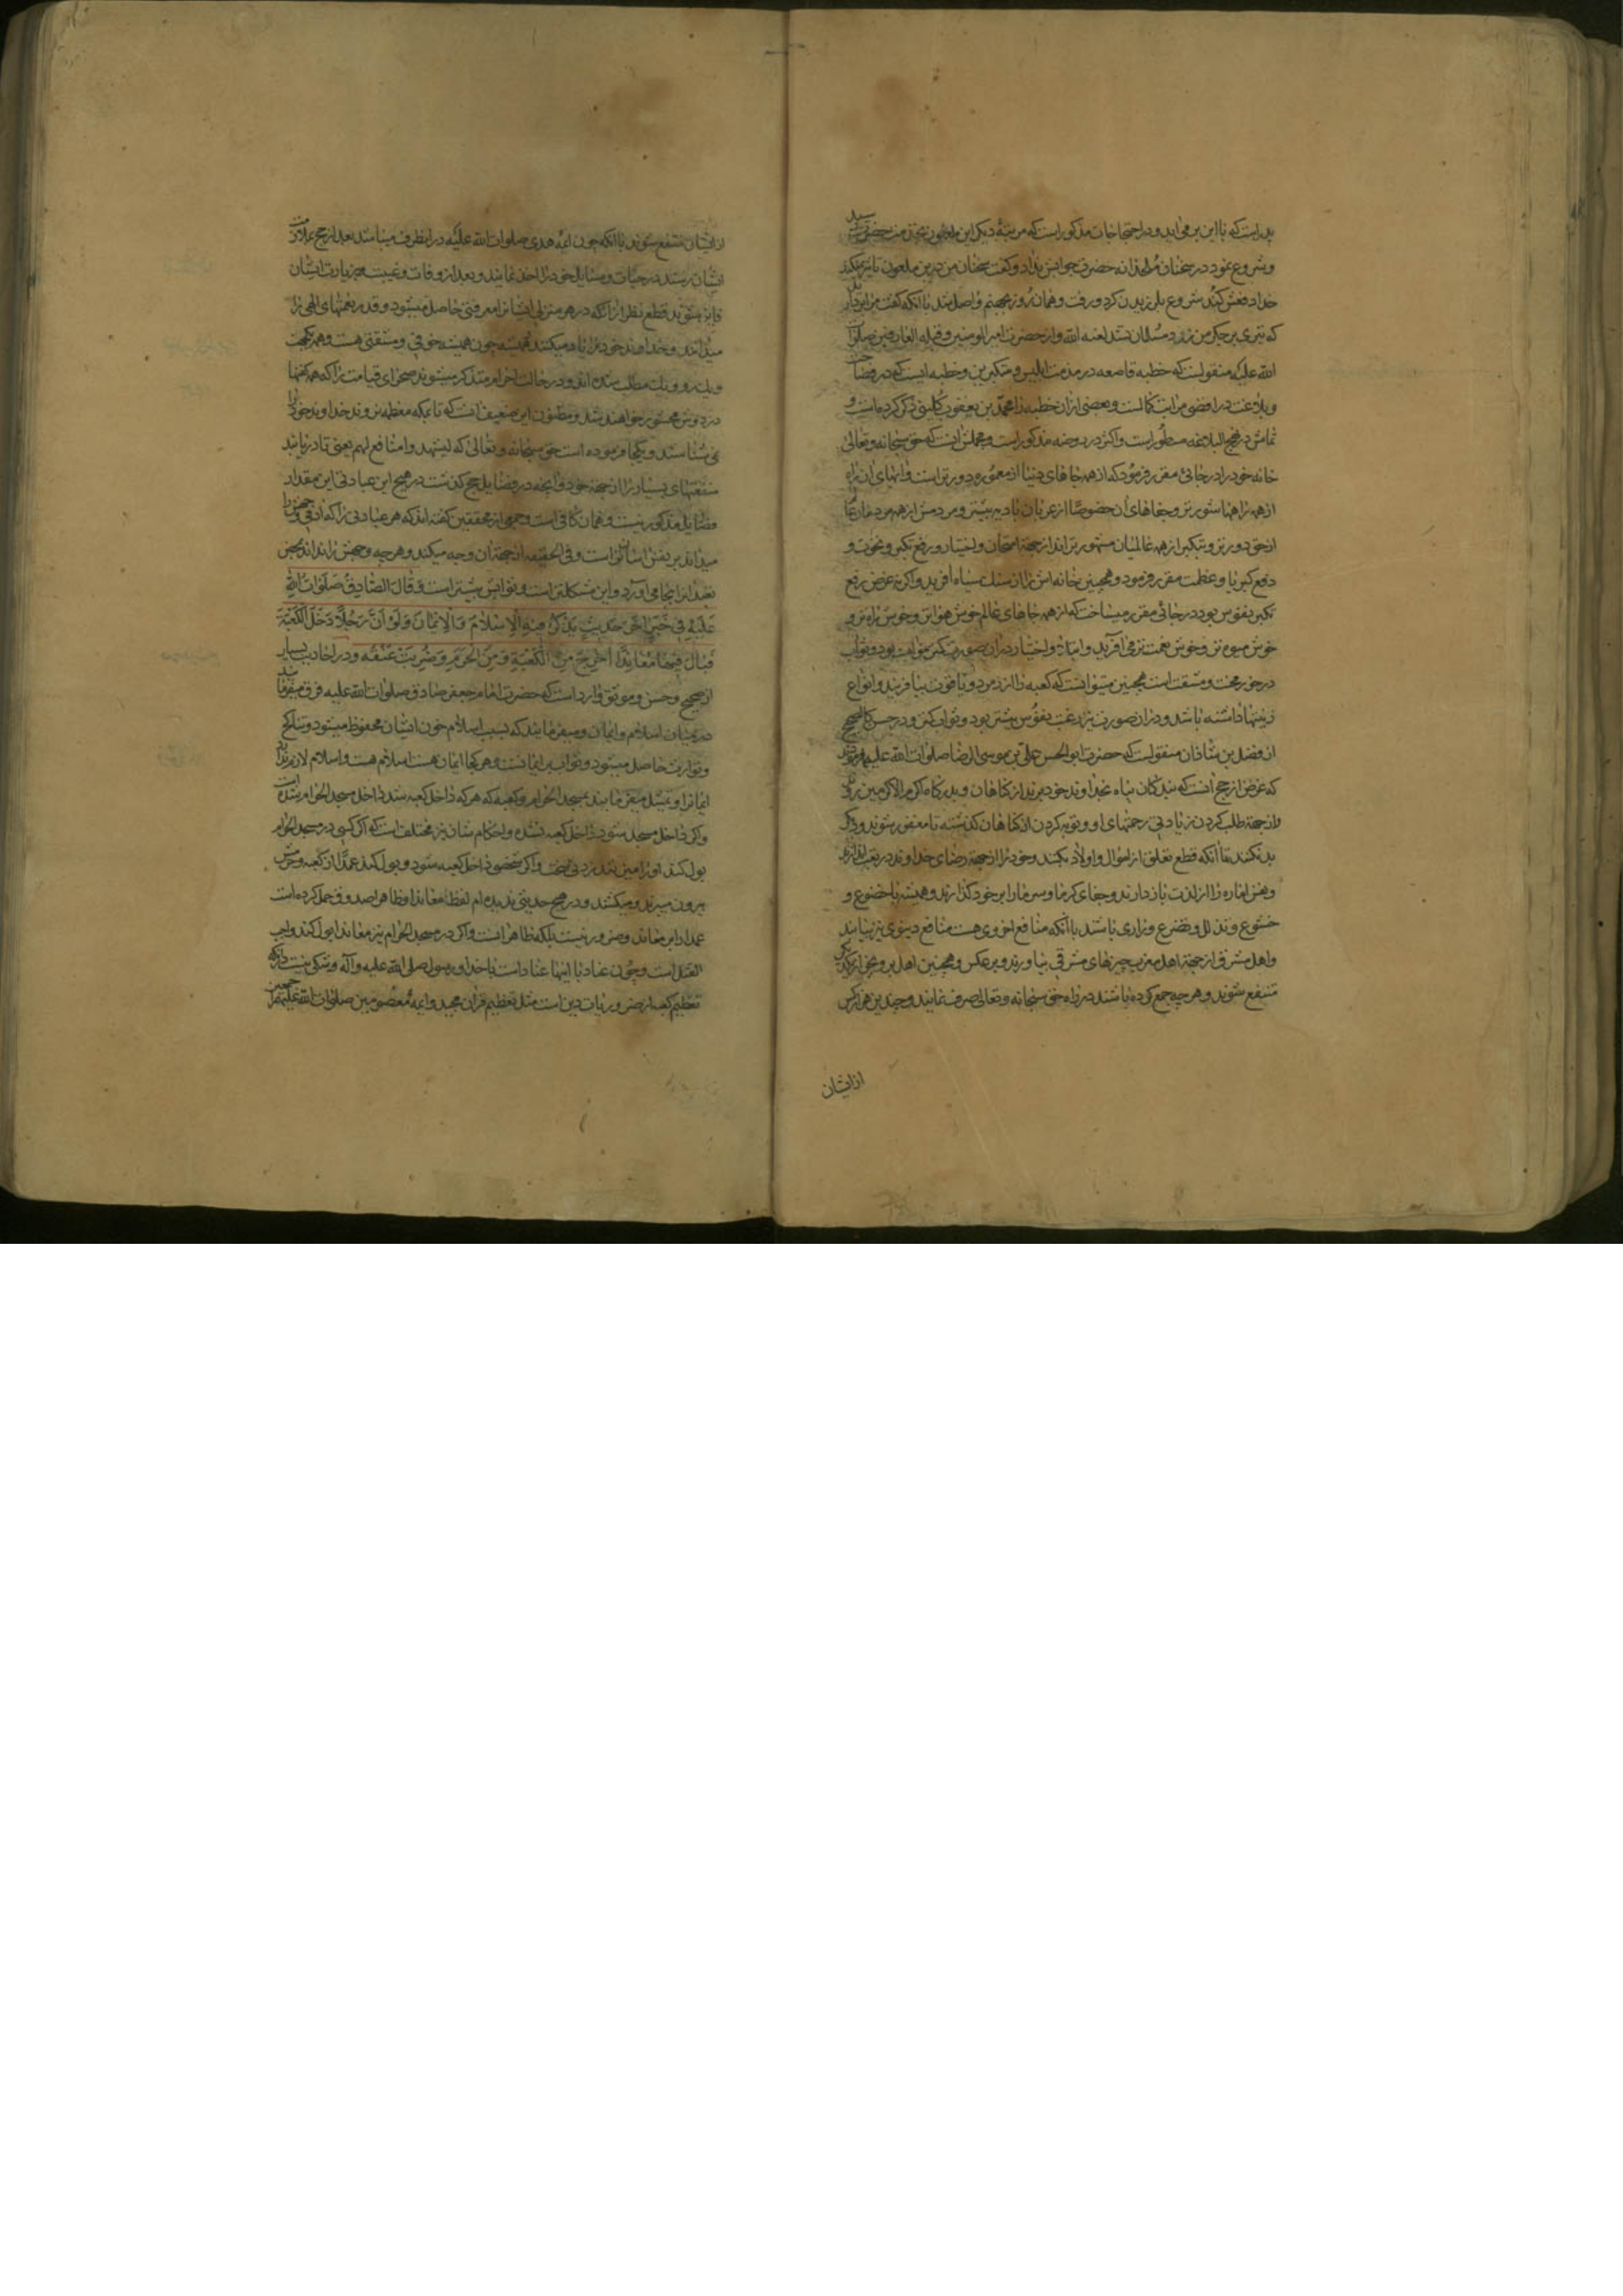 بداست که با این بر می‌اید و در احتجاجات مذکور است که مرتبهٔ دیکر این ملعون بخدمت حضرت رسید
و شروع نمود در سخنان ملحدانه حضرت جوابش نداد و کفت سخنان من در این ملعون تاثیر نمیکند
خدا دفعش کند شروع بلرزیدن کرد و رفت و همان روز بجهنم واصل شد با آنکه کفت مرا ببرید
که تیری بر جکر من زد و مسلمان نشد لعنه الله و از حضرت امیر المومنین و قبله العارفین صلوات
الله علیه منقولست که خطبه قاصعه در مذمت ابلیس و متکبرین و خطبه ایست که در فصاحت
و بلاغت در اقصی مراتب کمالست و بعضی از ان خطبه را محمد بن یعقوب کلینی ذکر کرده است و
تمامش در نهج البلاغه مسطور است و اکثر در روضه مذکور است و مجملش انست که حق سبحانه و تعالی
خانه خود را در جائی مقرر فرمود که از همه جاهای دنیا از معموره دورتر است و ابهای ان از راه
از همه راهها شورتر و جفاهای ان خصوصا از عربان بادیه بیشتر و مردمش از همه مردمان
از حق دورتر و بتکبر از همه عالمیان مشهورتراند از جهة امتحان و اختبار و رفع تکبر و نخوت و
دفع کبریا و عظمت مقرر فرمود و همچنین خانه اش را از سنک سیاه افرید و اکر نه غرض رفع
تکبر نفوس بود در جائی مقرر میساخت که از همه جاهای عالم خوش هواتر و خوش راه تر و
خوش میوه تر و خوش نعمت تر می افرید و ابتلا و اختبار در ان صورت کمتر میبود و ثواب
در خور محنت و مشقت است همچنین میتوانست که کعبه را از زمرد و یاقوت بیافریند و انواع
زینتها داشته باشد و در ان صورت رغبت نفوس بیشتر بود و ثواب کمتر و در حسن کالصحیح
از فضل بن شاذان منقولست که حضرت ابو الحسن علی بن موسی الرضا صلوات الله علیهما فرمودند
که غرض از حج انست که بندکان پناه بخداوند خود برند از کناهان و بدرکاه اکرم الاکرمین روند
و از جهة طلب کردن زیادتی رحمتهای او و توبه کردن از کناهان کذشته تا مغفور شوند و دیکر
بد نکنند با آنکه قطع تعلق از اموال و اولاد بکنند و خود را از جهة رضای خداوند در تعب اندازند
و نفس اماره را از لذت باز دارند و جفای کرما و سرما را بر خود کذارند و همیشه با خضوع و
خشوع و تذلل و تضرع و زاری باشند با آنکه منافع اخروی هست منافع دنیوی نیز بیابند
و اهل مشرق از جهة اهل مغرب چیزهای مشرقی بیاورند و برعکس و همچنین اهل بر و بحر از یکدیکر
منتفع شوند و هر چه جمع کرده باشند در راه حق سبحانه و تعالی صرف نمایند و چندین هزار کس
از ایشان
از ایشان منتفع شوند با آنکه چون ائمه هدی صلوات الله علیه در انطرف میباشند بعد از حج بملازمت
ایشان رسند در حیات و مسایل خود را اخذ نمایند و بعد از وفات و غیبت بزیارت ایشان
فایز شوند قطع نظر از انکه در هر منزلی ایشانرا معرفتی حاصل میشود و قدر نعمتهای الهی را
میدانند و خداوند خود را یاد میکنند همیشه چون همیشه خوفی و مشقتی هست و همه یکجهت
و یکرو و یک مطلب شده اند و در حالت احرام متذکر میشوند صحرای قیامت را که همه کفنها
در دوش محشور خواهند شد و مظنون این ضعیف انست که تا بمکه معظمه نروند خداوند خود را
نمی شناسند و یکجا فرموده است حق سبحانه و تعالی که لیشهدوا منافع لهم یعنی تا دریابند
منفعتهای بسیار را از جهة خود و انچه در فضایل حج کذشت در هیچ این عبادتی این مقدار
فضایل مذکور نیست و همان کافیست و جمعی از محققین کفته اند که هر عبادتی را که ادمی وجهش را
میداند بر نفس اسانتر است و فی الحقیقه از جهة ان وجه میکند و هر چه وجهش را نداند بمحض
تعبد انرا بجا می اورد و این مشکلتر است و ثوابش بیشتر است وَ قَالَ الصَّادِقُ صَلَوَاتُ اللهِ
عَلَیْهِ فِی خَبَرٍ اخَرَ حَدِیثٍ یَذْکُرُ فِیهِ الْاِسْلَامَ وَ الْاِیمَانَ وَ لَوْ اَنَّ رَجُلًا دَخَلَ الْکَعْبَةَ
فَبَالَ فِیهَا مُعَانِدًا اُخْرِجَ مِنَ الْکَعْبَةِ وَ مِنَ الْحَرَمِ وَ ضُرِبَتْ عُنُقُهُ و در احادیث بسیار
از صحیح و حسن و موثق وارد است که حضرت امام جعفر صادق صلوات الله علیه فرق میفرمایند
در میان اسلام و ایمان و میفرمایند که بسبب اسلام خون ایشان محفوظ میشود و تناکح
و توارث حاصل میشود و ثواب بر ایمانست و هر کجا ایمان هست اسلام هست و اسلام لازم ندارد
ایمانرا و تمثیل میفرمایند بمسجد الحرام و کعبه که هر که داخل کعبه شد داخل مسجد الحرام شده است
و اکر داخل مسجد شود داخل کعبه نشده و احکام شان نیز مختلف است که اکر کسی در مسجد الحرام
بول کند او را میزنند زدنی سخت و اکر شخصی داخل کعبه شود و بول کند عمدا از کعبه و حرمش
بیرون میبرند و میکشند و در هیچ حدیثی ندیده ام لفظ معاندا و ظاهرا صدوق حمل کرده است
عمدا را بر معاند و ضرور نیست بلکه ظاهر انست و اکر در مسجد الحرام نیز معاندا بول کند واجب
القتل است و چون عناد با اینها عناد است با خدا و رسول صلی الله علیه و آله و شکی نیست در آنکه
تعظیم کعبه از ضروریات دین است مثل تعظیم قران مجید و ائمه معصومین صلوات الله علیهم اجمعین